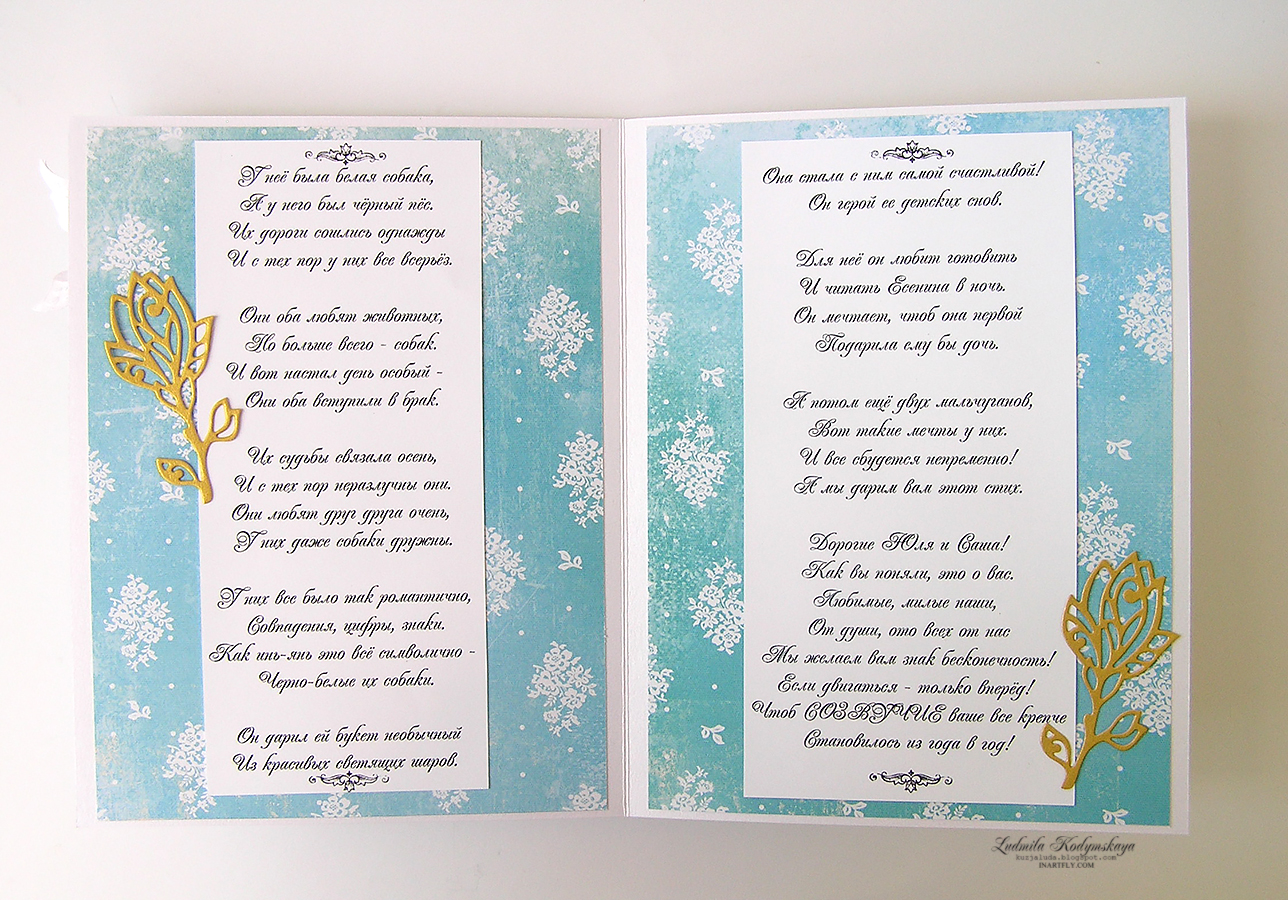 У неё была белая собака,
А у него был чёрный пёс.
Их дороги сошлись однажды
И с тех пор у них все всерьёз.
Они оба любят животных,
Но больше всего - собак.
И вот настал день особый -
Они оба вступили в брак.
Их судьбы связала осень,
И с тех пор неразлучны они.
Они любят друг друга очень,
У них даже собаки дружны.
У них все было так романтично,
Совпадения, цифры, знаки.
Как инь-янь это всё символично -
Черно-белые их собаки.
Он дарил ей букет необычный
Из красивых светящих шаров.
Она стала с ним самой счастливой!
Он герой ее детских снов.
Для неё он любит готовить
И читать Есенина в ночь.
Он мечтает, чтоб она первой
Подарила ему бы дочь.
А потом ещё двух мальчуганов,
Вот такие мечты у них.
И все сбудется непременно!
А мы дарим вам этот стих.
Дорогие Юля и Саша!
Как вы поняли, это о вас.
Любимые, милые наши,
От души, ото всех от нас
Мы желаем вам знак бесконечность!
Если двигаться - только вперёд!
Чтоб СОЗВУЧИЕ ваше все крепче
Становилось из года в год!
Ludmila Kodymskaya
kurjaluda.blogspot.com
INARTFLY.COM